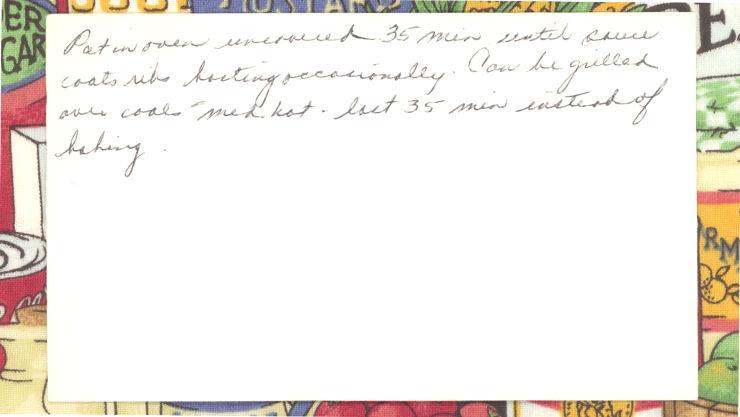 ER
GAR
MUSTARD
Put in oven uncovered 35 min until sauce
coats ribs basting occasionally. Can be grilled
over coals - med. hot - last 35 min instead of
baking.
RM